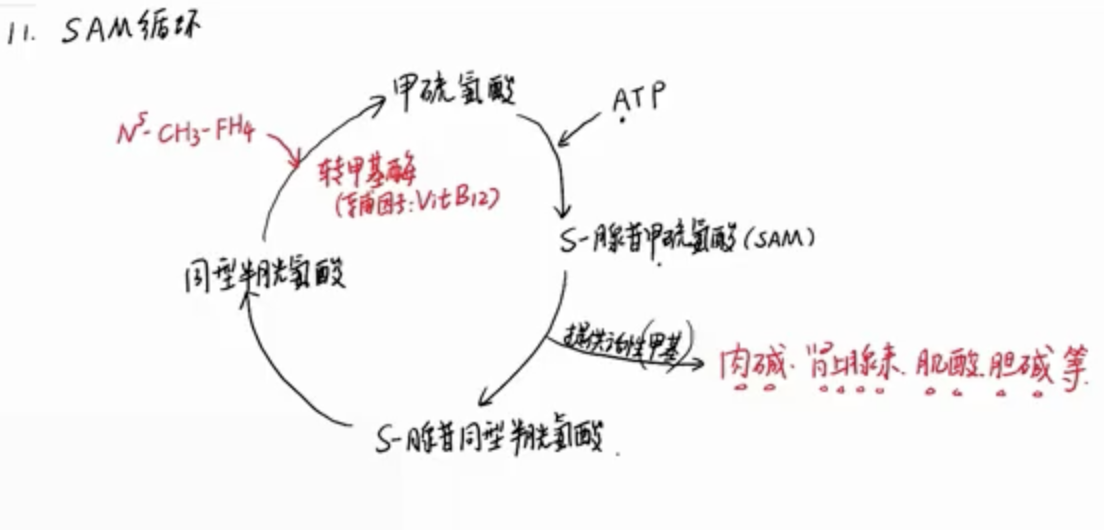 11. SAM循环
甲硫氨酸
ATP
N⁵-CH₃-FH₄
转甲基酶
(辅因子:VitB₁₂)
S-腺苷甲硫氨酸(SAM)
同型半胱氨酸
提供活性(甲基)
肉碱、肾上腺素、肌酸、胆碱等
S-腺苷同型半胱氨酸